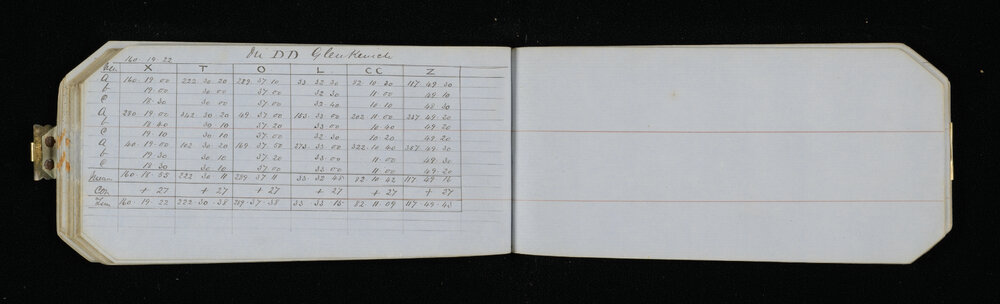 On DD Glenkeich
160 · 19 · 22
Ver X T O L CC Z
A 160 · 19 · 00 222 · 30 · 20 289 · 37 · 10 33 · 32 · 30 82 · 10 · 20 117 · 49 · 30
b 19 · 00 30 · 00 37 · 00 32 · 30 11 · 00 49 · 10
C 18 · 30 30 · 00 37 · 00 32 · 40 10 · 10 48 · 30
A 280 · 19 · 00 342 · 30 · 20 49 · 37 · 00 153 · 33 · 00 202 · 11 · 00 237 · 49 · 20
b 18 · 40 30 · 10 37 · 20 33 · 00 10 · 40 49 · 20
C 19 · 10 30 · 10 37 · 00 32 · 30 10 · 20 49 · 20
A 40 · 19 · 00 102 · 30 · 20 169 · 37 · 50 273 · 33 · 00 322 · 10 · 40 357 · 49 · 30
b 19 · 30 30 · 10 37 · 20 33 · 00 11 · 00 49 · 30
C 18 · 30 30 · 10 37 · 00 33 · 00 11 · 00 49 · 20
Mean 160 · 18 · 55 222 · 30 · 11 289 · 37 · 11 33 · 32 · 48 82 · 10 · 42 117 · 49 · 16
Cor + 27 + 27 + 27 + 27 + 27 + 27
160 · 19 · 22 222 · 30 · 38 289 · 37 · 38 33 · 33 · 15 82 · 11 · 09 117 · 49 · 43